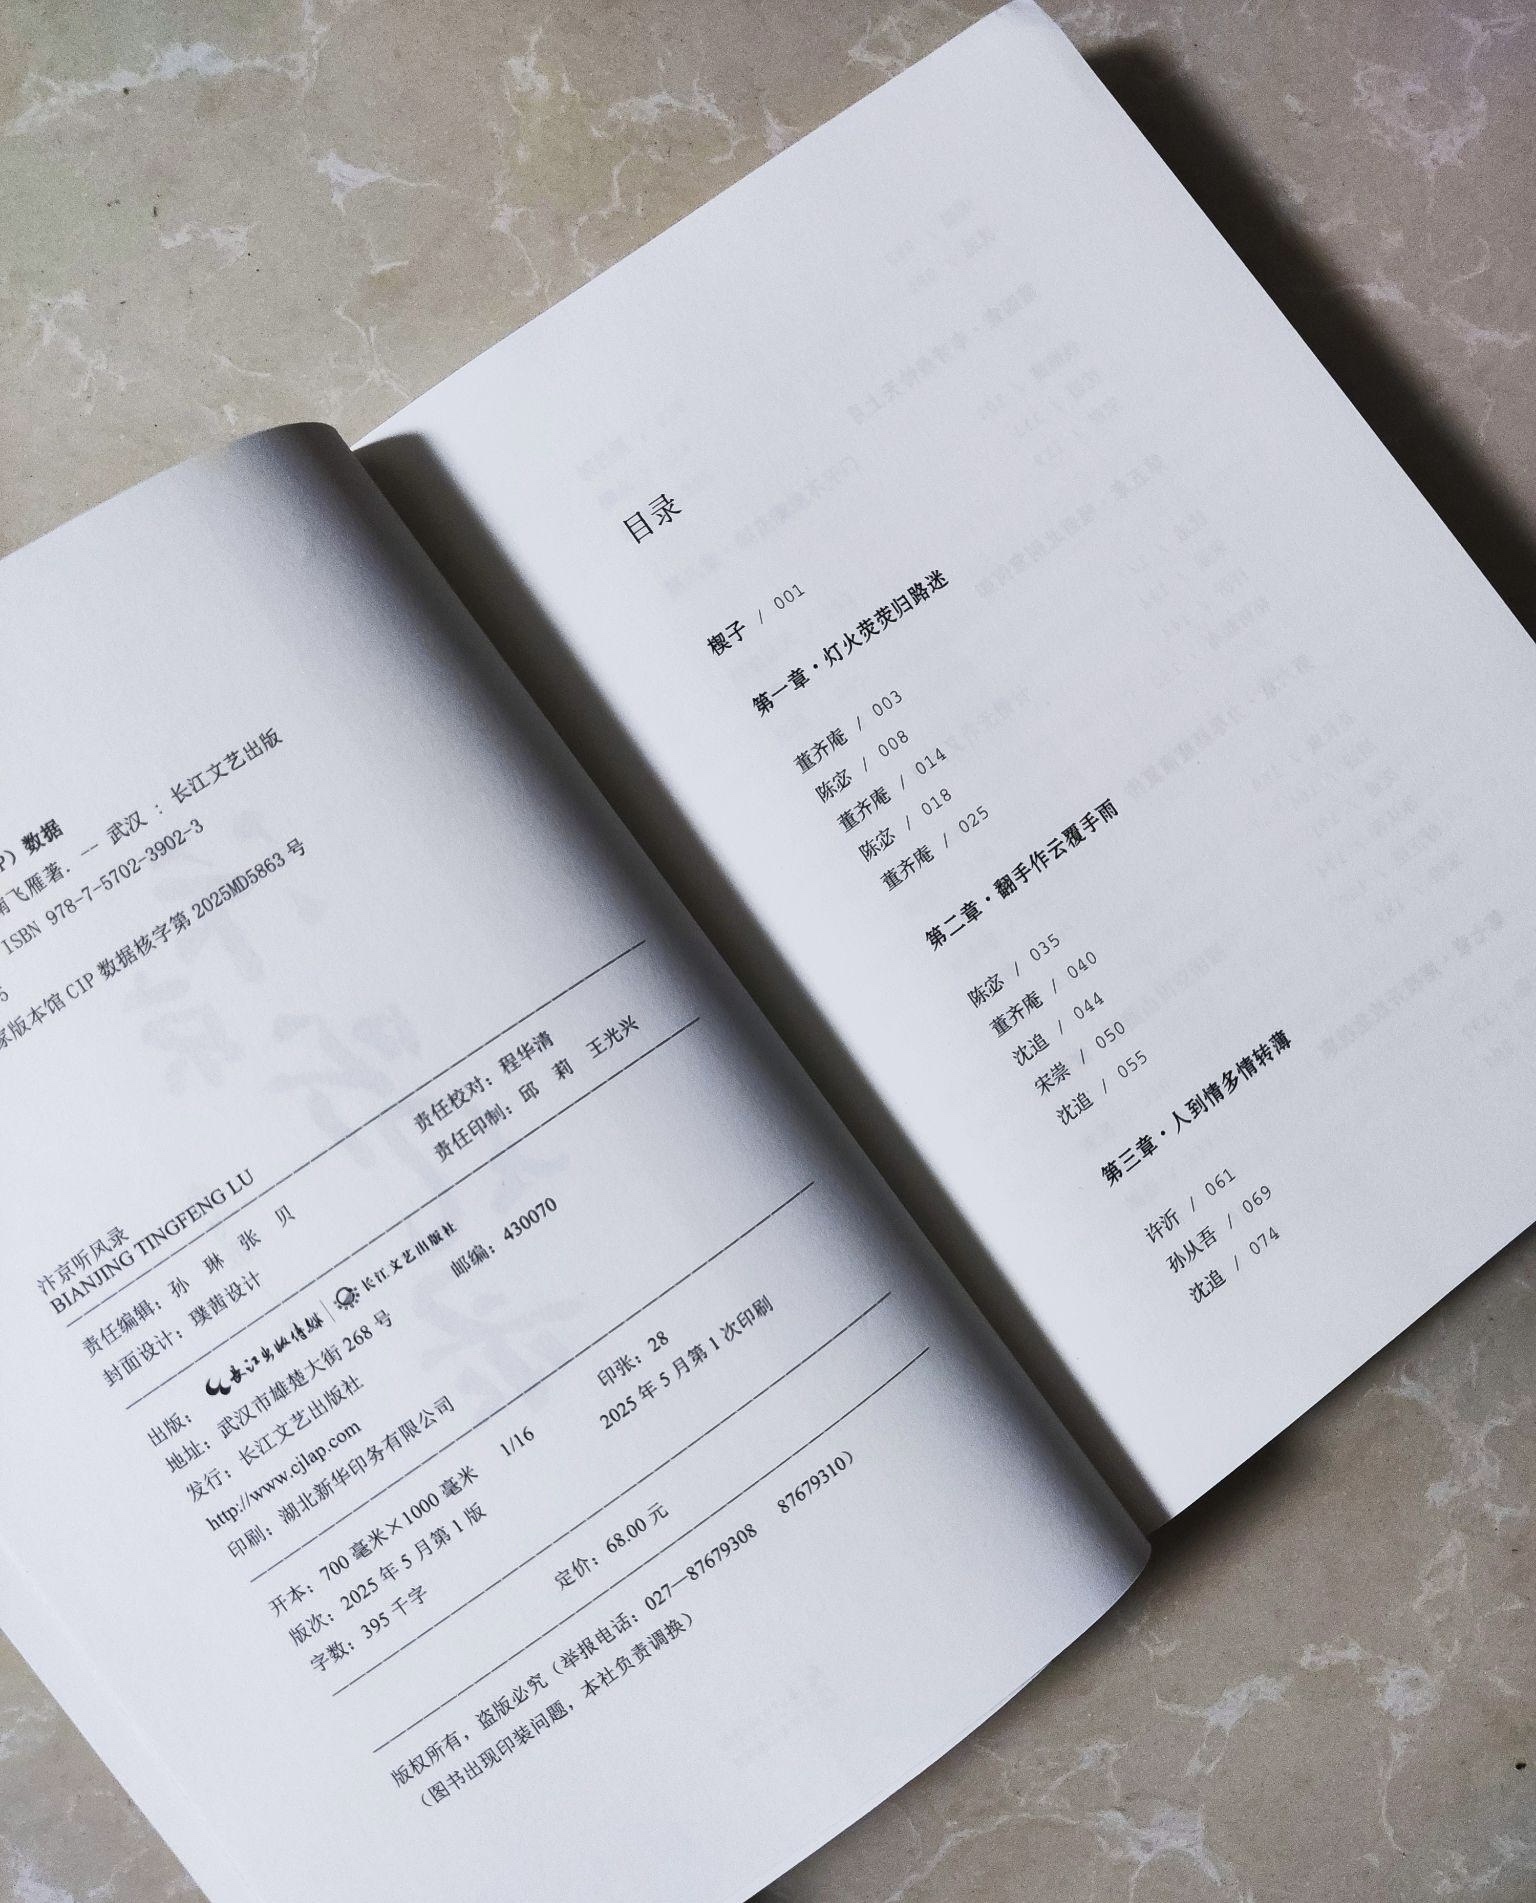 P）数据
飞雁著. -- 武汉 : 长江文艺出版
ISBN 978-7-5702-3902-3
5
家版本馆 CIP 数据核字第 2025MD5863 号
责任校对：程华清
责任印制：邱 莉 王光兴
汴京听风录
BIANJING TINGFENG LU
责任编辑：孙 琳 张 贝
封面设计：璞茜设计
出版：长江出版传媒 长江文艺出版社
地址：武汉市雄楚大街 268 号 邮编：430070
发行：长江文艺出版社
http://www.cjlap.com
印刷：湖北新华印务有限公司
开本：700 毫米×1000 毫米 1/16 印张：28
版次：2025 年 5 月第 1 版 2025 年 5 月第 1 次印刷
字数：395 千字
定价：68.00 元
版权所有，盗版必究（举报电话：027—87679308 87679310）
（图书出现印装问题，本社负责调换）
目录
楔子 / 001
第一章·灯火荧荧归路迷
董齐庵 / 003
陈宓 / 008
董齐庵 / 014
陈宓 / 018
董齐庵 / 025
第二章·翻手作云覆手雨
陈宓 / 035
董齐庵 / 040
沈追 / 044
宋崇 / 050
沈追 / 055
第三章·人到情多情转薄
许沂 / 061
孙从吾 / 069
沈追 / 074